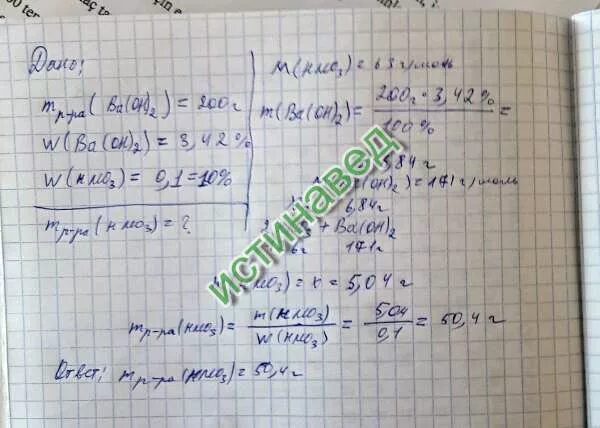 00 ter
için e
Дано:
m р-ра (Ba(OH)₂) = 200г
W(Ba(OH)₂) = 3,42%
W(HNO₃) = 0,1 = 10%
m р-ра (HNO₃) = ?
M(HNO₃) = 63 г/моль
m(Ba(OH)₂) = 200г · 3,42% / 100% =
,84 г
(OH)₂) = 171 г/моль
6,84г
+ Ba(OH)₂
171г
O₃) = x = 5,04 г
m р-ра (HNO₃) = m(HNO₃) / W(HNO₃) = 5,04 / 0,1 = 50,4 г
Ответ: m р-ра (HNO₃) = 50,4 г
истинавед